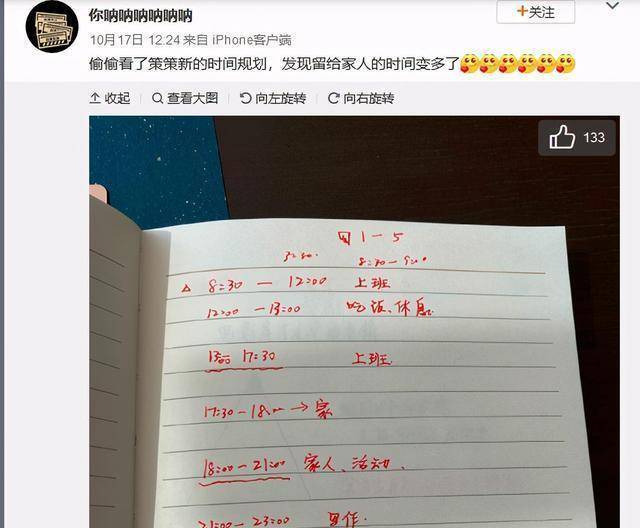 你呐呐呐呐呐呐
+关注
10月17日 12:24 来自 iPhone客户端
偷偷看了策策新的时间规划，发现留给家人的时间变多了
收起 查看大图 向左旋转 向右旋转
133
1-5
8:30-9:00
△ 8:30 — 12:00 上班
12:00 — 13:00 吃饭、休息
13:00 17:30 上班
17:30 - 18:00 → 家
18:00 - 21:00 家人、活动.
21:00 - 23:00 写作.